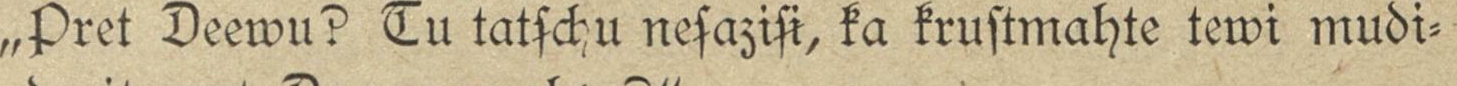 „Pret Deewu? Tu tatſchu neſaziſi, ka kruſtmahte tewi mudi⸗